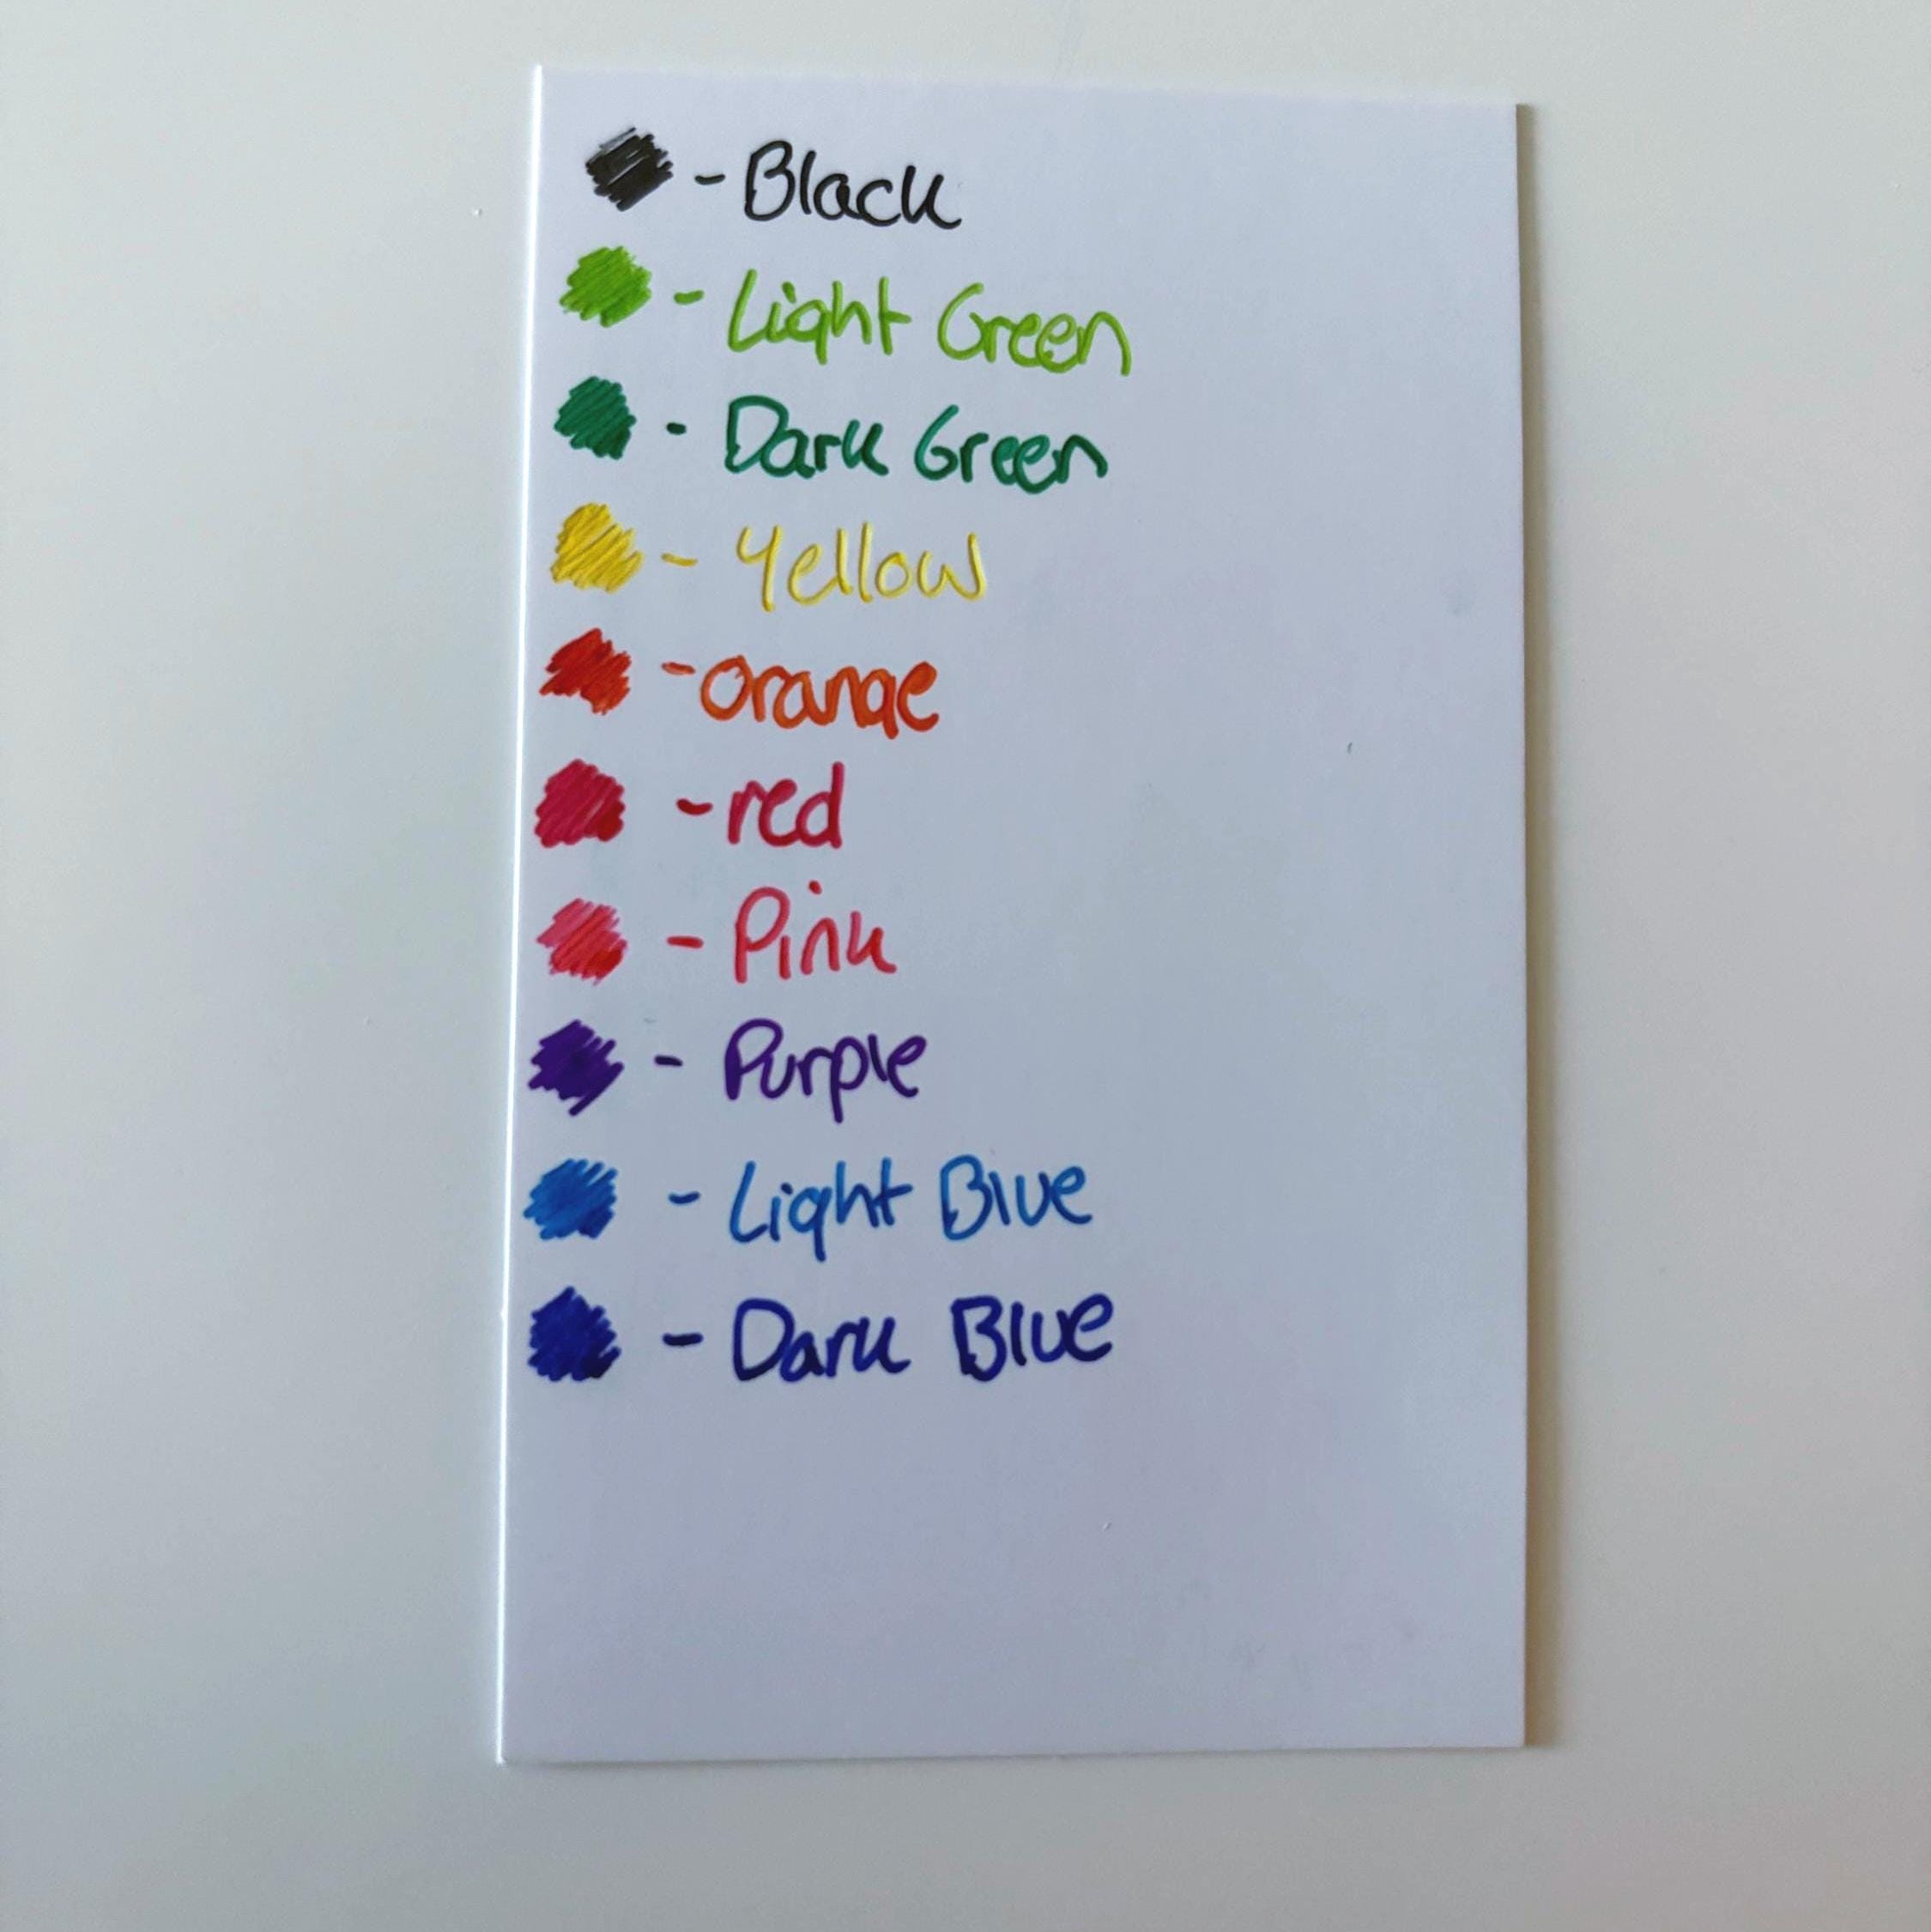 - Black
- Light Green
- Dark Green
- Yellow
- orange
- red
- Pink
- Purple
- Light Blue
- Dark Blue